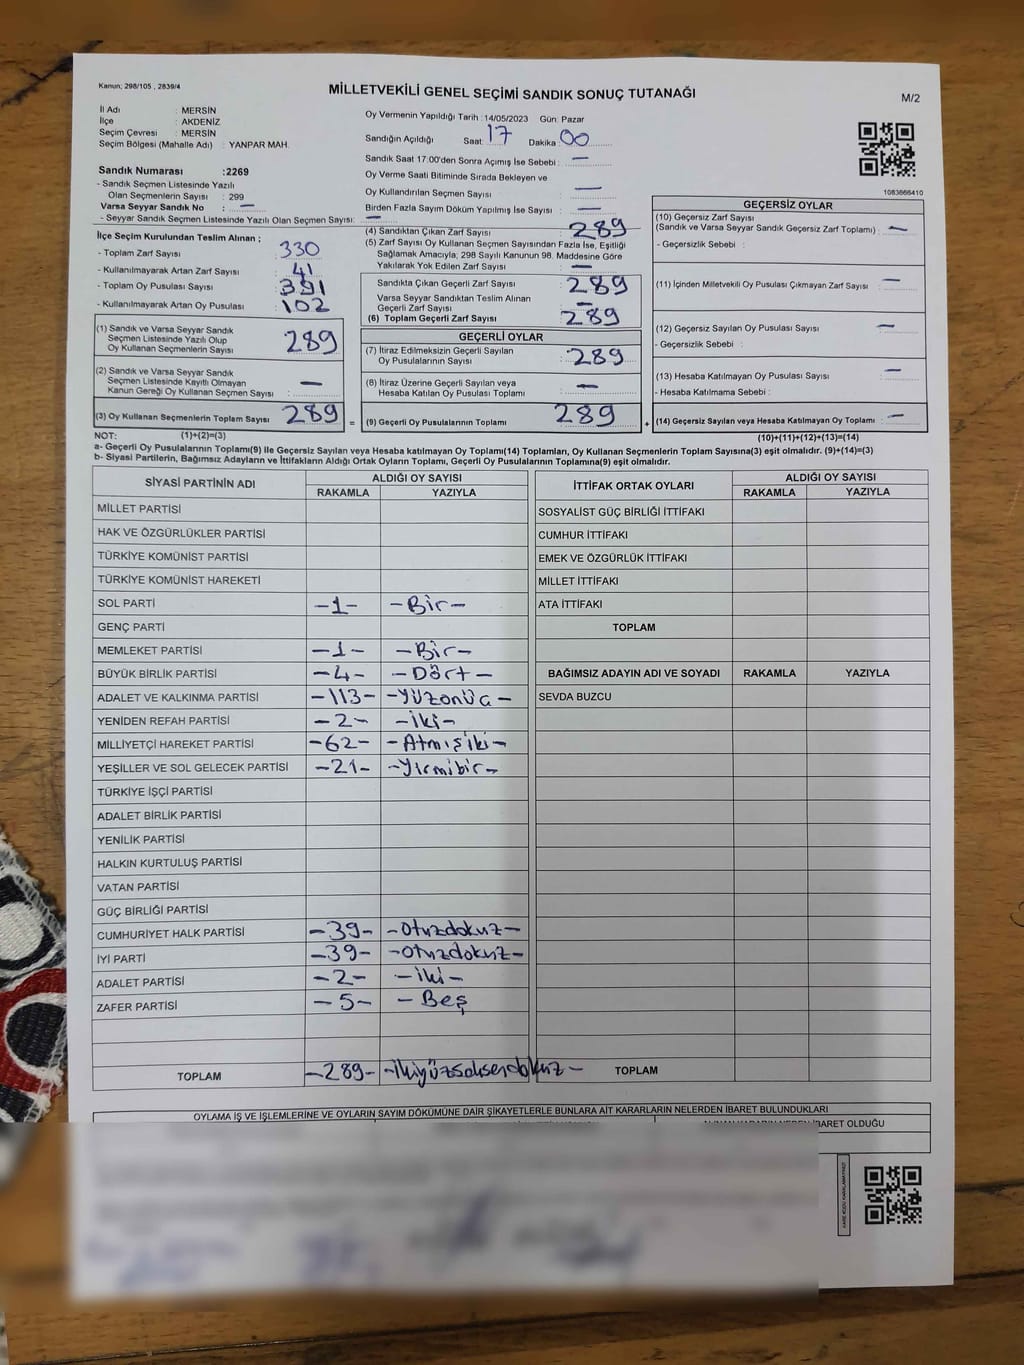 Kanun; 298/105 , 2839/4
MİLLETVEKİLİ GENEL SEÇİMİ SANDIK SONUÇ TUTANAĞI
M/2
İl Adı : MERSİN
İlçe : AKDENİZ
Seçim Çevresi : MERSİN
Seçim Bölgesi (Mahalle Adı) : YANPAR MAH.
Sandık Numarası :2269
- Sandık Seçmen Listesinde Yazılı
Olan Seçmenlerin Sayısı : 299
Varsa Seyyar Sandık No : —
- Seyyar Sandık Seçmen Listesinde Yazılı Olan Seçmen Sayısı: —
Oy Vermenin Yapıldığı Tarih :14/05/2023 Gün: Pazar
Sandığın Açıldığı Saat: 17 Dakika: 00
Sandık Saat 17:00'den Sonra Açımış İse Sebebi : —
Oy Verme Saati Bitiminde Sırada Bekleyen ve
Oy Kullandırılan Seçmen Sayısı : —
Birden Fazla Sayım Döküm Yapılmış İse Sayısı : —
1083666410
İlçe Seçim Kurulundan Teslim Alınan ;
- Toplam Zarf Sayısı : 330
- Kullanılmayarak Artan Zarf Sayısı : 41
- Toplam Oy Pusulası Sayısı : 391
- Kullanılmayarak Artan Oy Pusulası : 102
(1) Sandık ve Varsa Seyyar Sandık
Seçmen Listesinde Yazılı Olup
Oy Kullanan Seçmenlerin Sayısı : 289
(2) Sandık ve Varsa Seyyar Sandık
Seçmen Listesinde Kayıtlı Olmayan
Kanun Gereği Oy Kullanan Seçmen Sayısı : —
(3) Oy Kullanan Seçmenlerin Toplam Sayısı : 289
(4) Sandıktan Çıkan Zarf Sayısı : 289
(5) Zarf Sayısı Oy Kullanan Seçmen Sayısından Fazla İse, Eşitliği
Sağlamak Amacıyla; 298 Sayılı Kanunun 98. Maddesine Göre
Yakılarak Yok Edilen Zarf Sayısı : —
Sandıkta Çıkan Geçerli Zarf Sayısı : 289
Varsa Seyyar Sandıktan Teslim Alınan
Geçerli Zarf Sayısı : —
(6) Toplam Geçerli Zarf Sayısı : 289
GEÇERLİ OYLAR
(7) İtiraz Edilmeksizin Geçerli Sayılan
Oy Pusulalarının Sayısı : 289
(8) İtiraz Üzerine Geçerli Sayılan veya
Hesaba Katılan Oy Pusulası Toplamı : —
= (9) Geçerli Oy Pusulalarının Toplamı : 289
GEÇERSİZ OYLAR
(10) Geçersiz Zarf Sayısı
(Sandık ve Varsa Seyyar Sandık Geçersiz Zarf Toplamı) : —
- Geçersizlik Sebebi :
(11) İçinden Milletvekili Oy Pusulası Çıkmayan Zarf Sayısı : —
(12) Geçersiz Sayılan Oy Pusulası Sayısı : —
- Geçersizlik Sebebi :
(13) Hesaba Katılmayan Oy Pusulası Sayısı : —
- Hesaba Katılmama Sebebi :
+ (14) Geçersiz Sayılan veya Hesaba Katılmayan Oy Toplamı : —
NOT: (1)+(2)=(3)
(10)+(11)+(12)+(13)=(14)
a- Geçerli Oy Pusulalarının Toplamı(9) ile Geçersiz Sayılan veya Hesaba katılmayan Oy Toplamı(14) Toplamları, Oy Kullanan Seçmenlerin Toplam Sayısına(3) eşit olmalıdır. (9)+(14)=(3)
b- Siyasi Partilerin, Bağımsız Adayların ve İttifakların Aldığı Ortak Oyların Toplamı, Geçerli Oy Pusulalarının Toplamına(9) eşit olmalıdır.
SİYASİ PARTİNİN ADI ALDIĞI OY SAYISI
RAKAMLA YAZIYLA
MİLLET PARTİSİ
HAK VE ÖZGÜRLÜKLER PARTİSİ
TÜRKİYE KOMÜNİST PARTİSİ
TÜRKİYE KOMÜNİST HAREKETİ
SOL PARTİ -1- -Bir-
GENÇ PARTİ
MEMLEKET PARTİSİ -1- -Bir-
BÜYÜK BİRLİK PARTİSİ -4- -Dört-
ADALET VE KALKINMA PARTİSİ -113- -Yüzonüç-
YENİDEN REFAH PARTİSİ -2- -iki-
MİLLİYETÇİ HAREKET PARTİSİ -62- -Atmışiki-
YEŞİLLER VE SOL GELECEK PARTİSİ -21- -Yirmibir-
TÜRKİYE İŞÇİ PARTİSİ
ADALET BİRLİK PARTİSİ
YENİLİK PARTİSİ
HALKIN KURTULUŞ PARTİSİ
VATAN PARTİSİ
GÜÇ BİRLİĞİ PARTİSİ
CUMHURİYET HALK PARTİSİ -39- -Otuzdokuz-
İYİ PARTİ -39- -Otuzdokuz-
ADALET PARTİSİ -2- -iki-
ZAFER PARTİSİ -5- -Beş
TOPLAM -289- -ikiyüzseksendokuz-
İTTİFAK ORTAK OYLARI ALDIĞI OY SAYISI
RAKAMLA YAZIYLA
SOSYALİST GÜÇ BİRLİĞİ İTTİFAKI
CUMHUR İTTİFAKI
EMEK VE ÖZGÜRLÜK İTTİFAKI
MİLLET İTTİFAKI
ATA İTTİFAKI
TOPLAM
BAĞIMSIZ ADAYIN ADI VE SOYADI RAKAMLA YAZIYLA
SEVDA BUZCU
TOPLAM
OYLAMA İŞ VE İŞLEMLERİNE VE OYLARIN SAYIM DÖKÜMÜNE DAİR ŞİKAYETLERLE BUNLARA AİT KARARLARIN NELERDEN İBARET BULUNDUKLARI
İBARET OLDUĞU